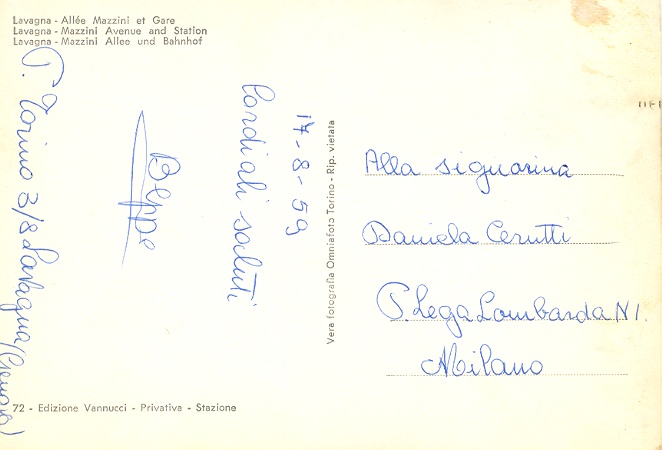 Lavagna - Allée Mazzini et Gare
Lavagna - Mazzini Avenue and Station
Lavagna - Mazzini Allee und Bahnhof
14-8-59
Cordiali saluti
Beppe
P. Torino 3/8 Lavagna (Genova)
Vera fotografia Omniafoto Torino - Rip. vietata
Alla signorina
Daniela Cerutti
P. Lega Lombarda N 1.
Milano
72 - Edizione Vannucci - Privativa - Stazione